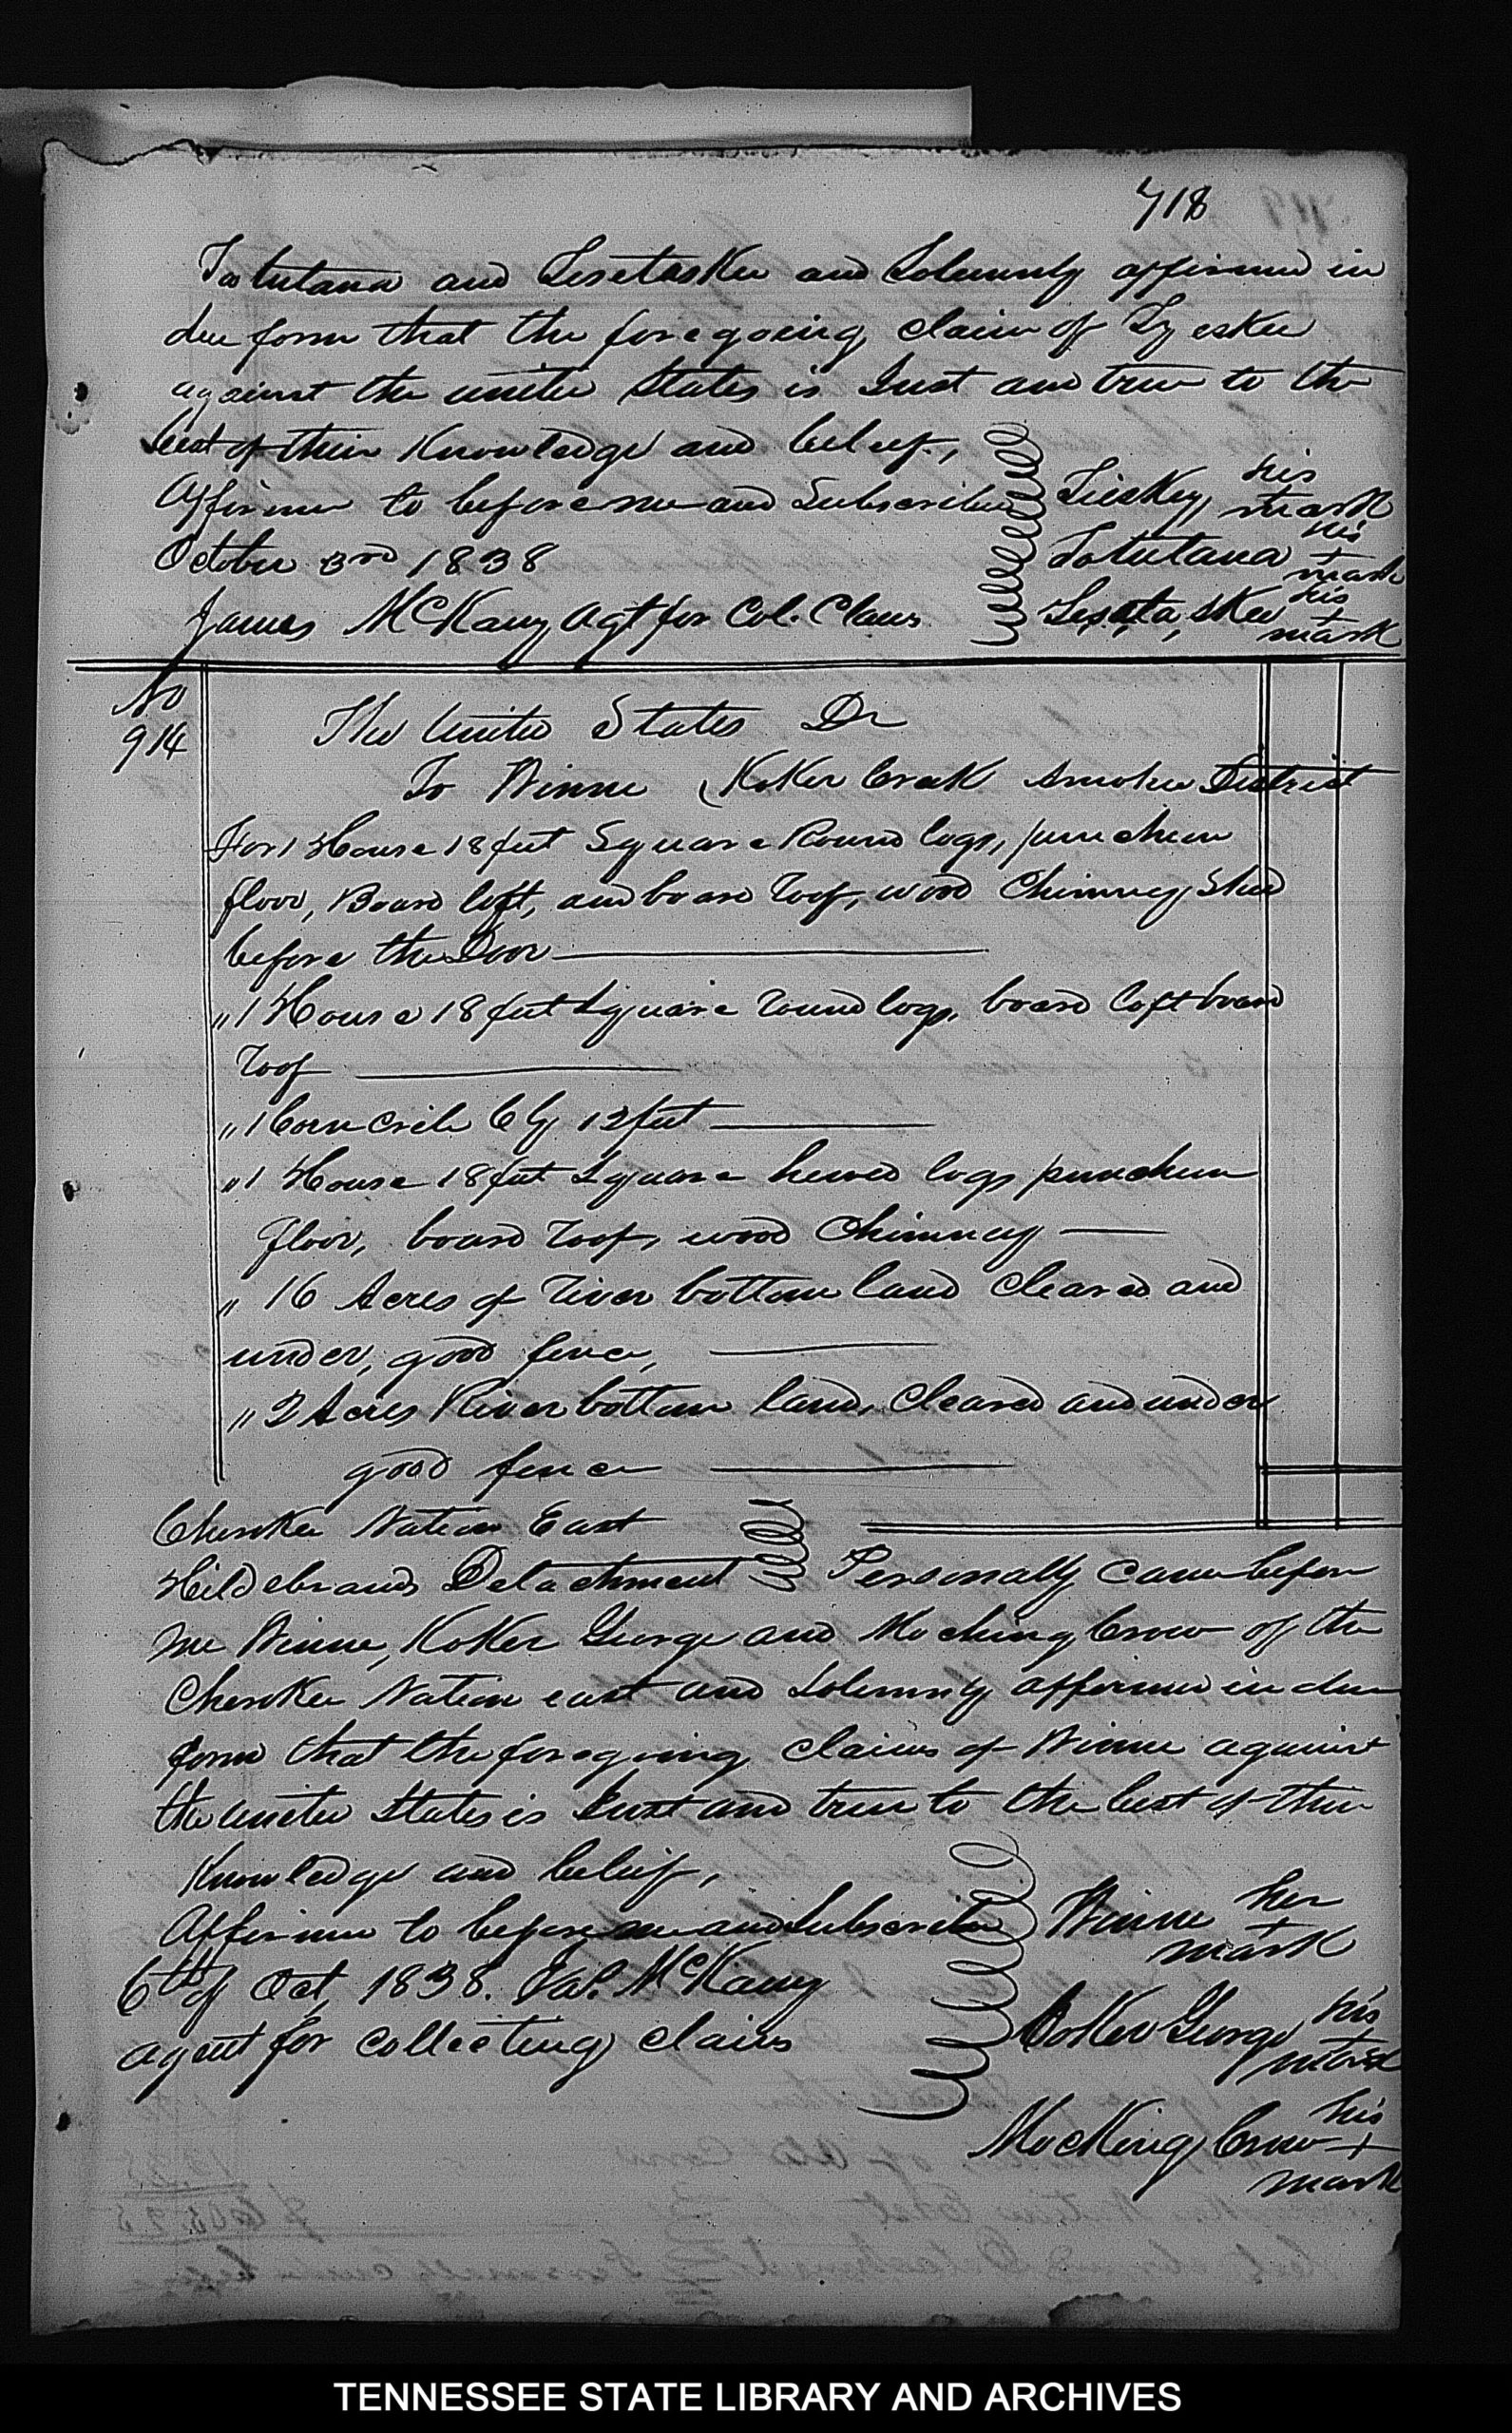 718
Totutana and Lesetaskee and Solemnly affirmed in
due form that the foregoing claim of Ty eskee
against the united States is Just and true to the
best of their Knowledge and belief,
Affirmed to before me and Subscribed
October 3rd 1838
James McKamy Agt for Col. Claims
Tieskey, his mark
Totutana his + mark
Lesata,skee his + mark
No 914
The United States Dr
To Winne Koker Creek Amohee District
For 1 House 18 feet Square Round logs, puncheon
floor, Board loft, and board roof, wood Chimney, Shed
before the Door
" 1 House 18 feet Square round logs, board loft board
roof
" 1 Corn Crib 6 by 12 feet
" 1 House 18 feet Square hewed logs puncheon
floor, board roof, wood Chimney
" 16 Acres of river bottom land Cleared and
under, good fence,
" 2 Acres River bottom land, Cleared and under
good fence
Cherokee Nation East
Hildebrands Detachment Personally came before
me Winne, Koker George and Mocking Crow of the
Cherokee Nation east and Solemnly affirmed in due
form that the foregoing claims of Winne against
the united States is Just and true to the best of their
Knowledge and belief,
Affirmed to before me and Subscribed
6th of Oct, 1838. Jas. McKamy
agent for collecting claims
Winne her + mark
Coker George his mark
Mocking Crow his + mark
TENNESSEE STATE LIBRARY AND ARCHIVES